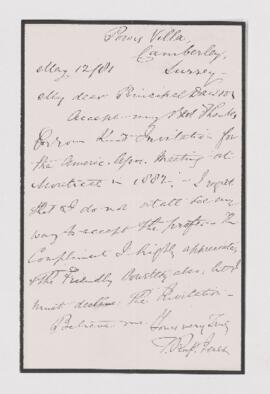 Powis Villa,
Camberley,
Surrey -
May 12/81
My dear Principal Dawson
Accept my best thanks
for your kind Invitation for
the Americ. Assn. Meeting at
Montreal in 1882; - I regret
that I do not at all see my
way to accept the proffer - The
Compliment I highly appreciate,
& the Friendly also, but I
must decline the Invitation -
Believe me Yours very truly
T. Rupt. Jones